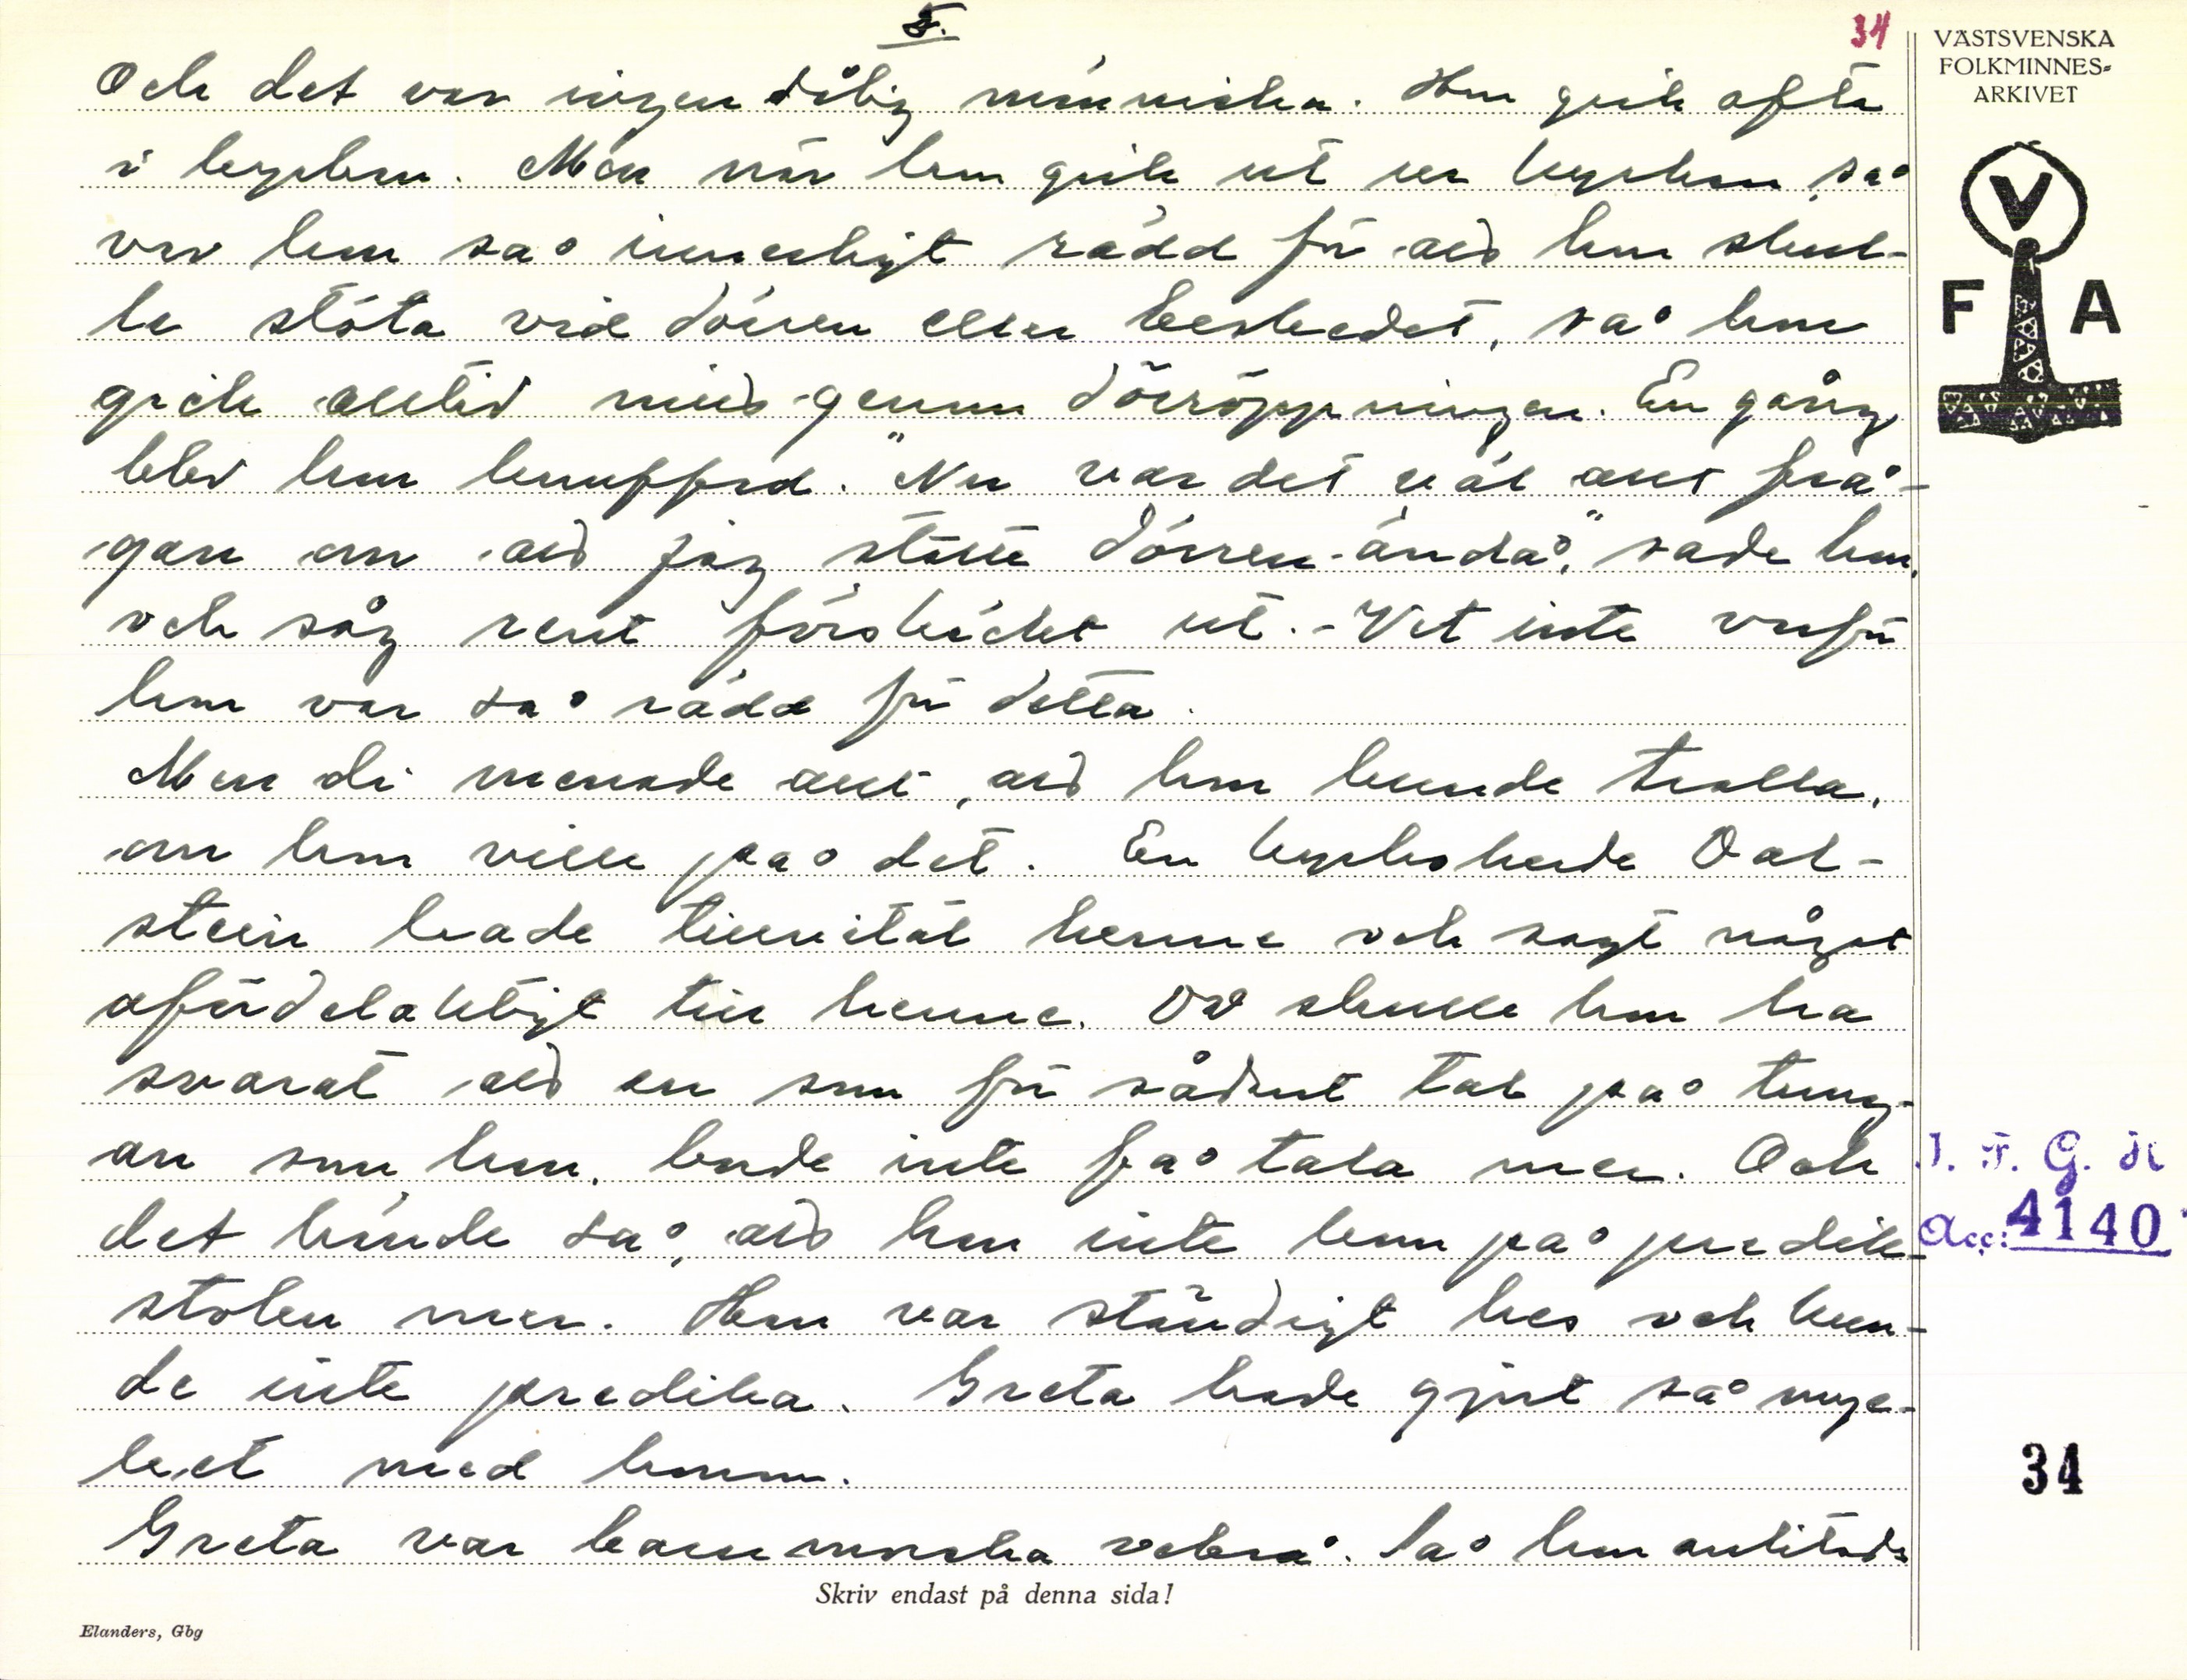 5.
34
VÄSTSVENSKA
FOLKMINNES-
ARKIVET
V
F A
Och det var ingen dålig människa. Hon gick ofta
i kyrkan. Men när hon gick ut ur kyrkan, så
var hon så innerligt rädd för att hon skul-
le stöta vid dörren eller, så hon
gick alltid mitt genom dörröppningen. En gång
blev hon knuffad. "Nu var det väl allt frå-
gan om att jag stötte dörren ändå," sade hon,
och såg rent förskräckt ut. - Vet inte varför
hon var så rädd för detta.
Men di menade allt, att hon kunde trolla,
om hon ville på det. En kyrkoherde Oal-
stein hade tilltalat henne och sagt något
ofördelaktigt till henne. Då skulle hon ha
svarat att en som för sådant tal på tung-
an som han, borde inte få tala mer. Och
det hände så, att han inte kom på predik-
stolen mer. Han var ständigt hes och kun-
de inte predika. Greta hade gjort så myc-
ket med honom.
Greta var barnmorska också. Så hon anlitades
Skriv endast på denna sida!
Elanders, Gbg
I. F. G. H
Acc: 4140
34